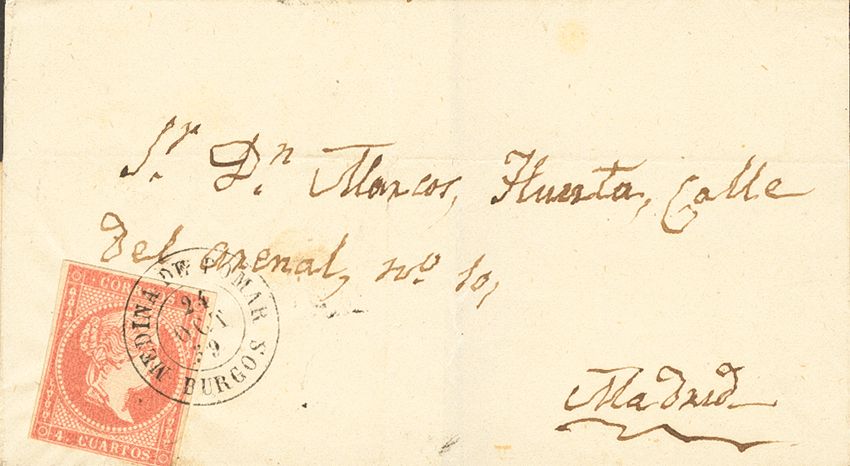 Sr. Dn Marcos, Huerta, Calle
del arenal, no. 10,
Madrid
MEDINA DE POMAR
24
OCT
59
BURGOS
CORREOS
4 CUARTOS